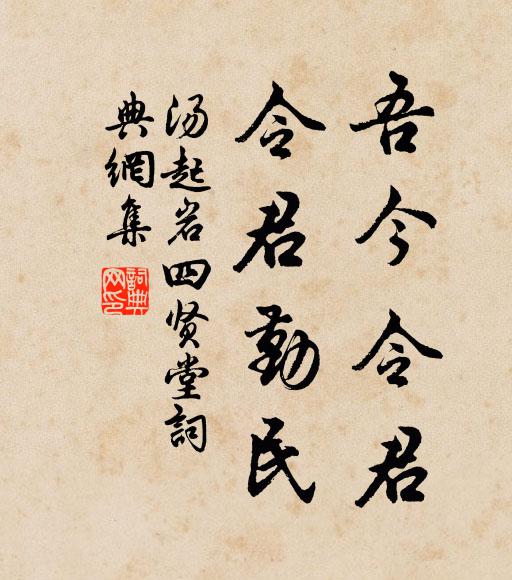 吾今令君
令君勤民
汤起岩四贤堂詞
典網集
詞典网印